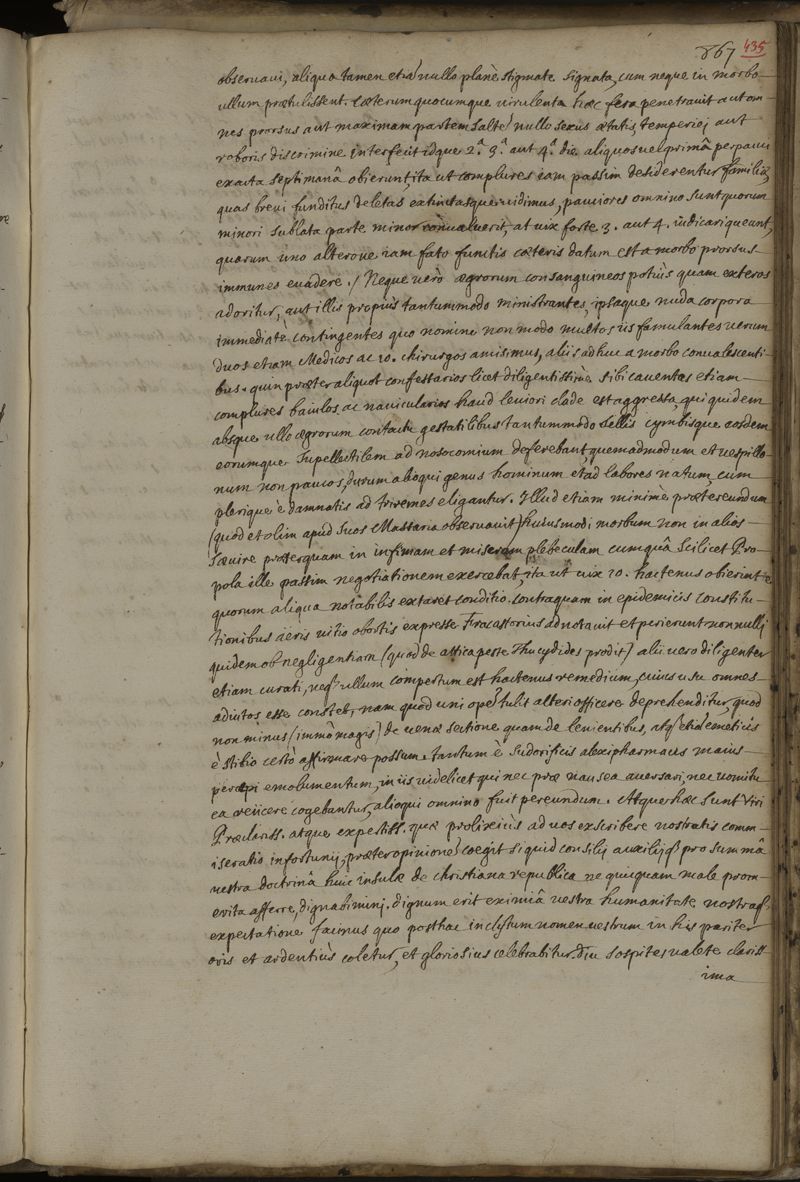 867 435
obseruaui, aliqua tamen etiã nullo planè stigmate signata, cum neque in morbo
ullum prætulissent. Cæterum quocumque virulenta hæc fera penetrauit aut om-
nes prorsus aut maximam partem saltẽ nullo sexus ætatis, temperiej aut
roboris discrimine interfecit idque 2.ª 3.ª aut 4.ª die aliquos uel primâ perpauci
exacta septimanâ obierunt, ita ut complures iam passim desiderentur familiæ,
quas breui funditus deletas extinctasque uidimus, pauciores omnino sunt quorum
minori sublata parte minor conualuerit, at uix forte 3. aut 4. iudicari queunt,
quorum uno alteroue iam fato functis cæteris datum est a morbo prorsus
immunes euadere./ Neque uerò ægrorum consanguineos potius quam exteros
adoritur, aut illis propius tantummodo ministrantes, ipsaque nuda corpora
immediatè contingentes quo nomine non modo multos iis famulantes uerum
duos etiam Medicos ac 10. chirurgos amisimus, aliis adhuc a morbo conualescenti-
bus. quin præter aliquot confessarios licet diligentissime sibi cauentes etiam
complures baiulos ac nauicularios haud leuiori clade est aggressa, qui quidem
absque ullo ægrorum contactu gestatilibus tantummodo sellis cymbisque eosdem
eorumque supellectilem ad nosocomium deferebant, quemadmodum et uespillo-
num non paucos, durum alioqui genus hominum et ad labores natum, cum
plerique è damnatis ad triremes eligantur. Illud etiam minimè prætereundum
(quod et olim apud suos Massaria obseruauit) huiusmodi morbum non in alios
sæuire præterquam in infimam et miseram plebeculam cum quâ scilicet Pro-
pola ille passim negotiationem exercebat, ita ut uix 10. hactenus obierint
quorum aliqua notabilis extaret conditio. contra quam in epidemicis constitu-
tionibus aëris uitio obortis expresse Fracastorius adnotauit et perierunt nonnullj
quidem ob negligentiam (quod de attica peste Thucydides prodit) alii uero diligenter
etiam curati, neq; ullum compertum est hactenus remedium, cuius usu omnes
adiutos esse constet, nam quod uni opẽ tulit alteri officere deprehenditur, quod
non minus (immò magis) de uenæ sectione quam de lenientibus, atq; etiã emeticis
è stibio certò affirmare possum. tantum è sudorificis alexipharmacis maius
percepi emolumentum, in iis uidelicet qui nec præ nausea auersari, nec uomitu
ea reiicere cogebantur, alioqui omnino fuit pereundum. Atque hæc sunt Viri
Præclariss. atque expertiss. quæ prolixius ad uos exscribere nostratis comm-
iseratio infortunij, præter opinionẽ coegit si quid consilij auxilijq; pro summâ
uestra doctrinâ huic insulæ de christiana republica ne quicquam male prom-
erita afferre, dignabiminj. dignum erit eximiâ uestra humanitate, nostraq;
expectatione facinus quo posthac inclytum nomen uestrum in his pariter
oris et ardentius coletur, et gloriosius celebrabitur. Diu sospites ualete clariss-
ima